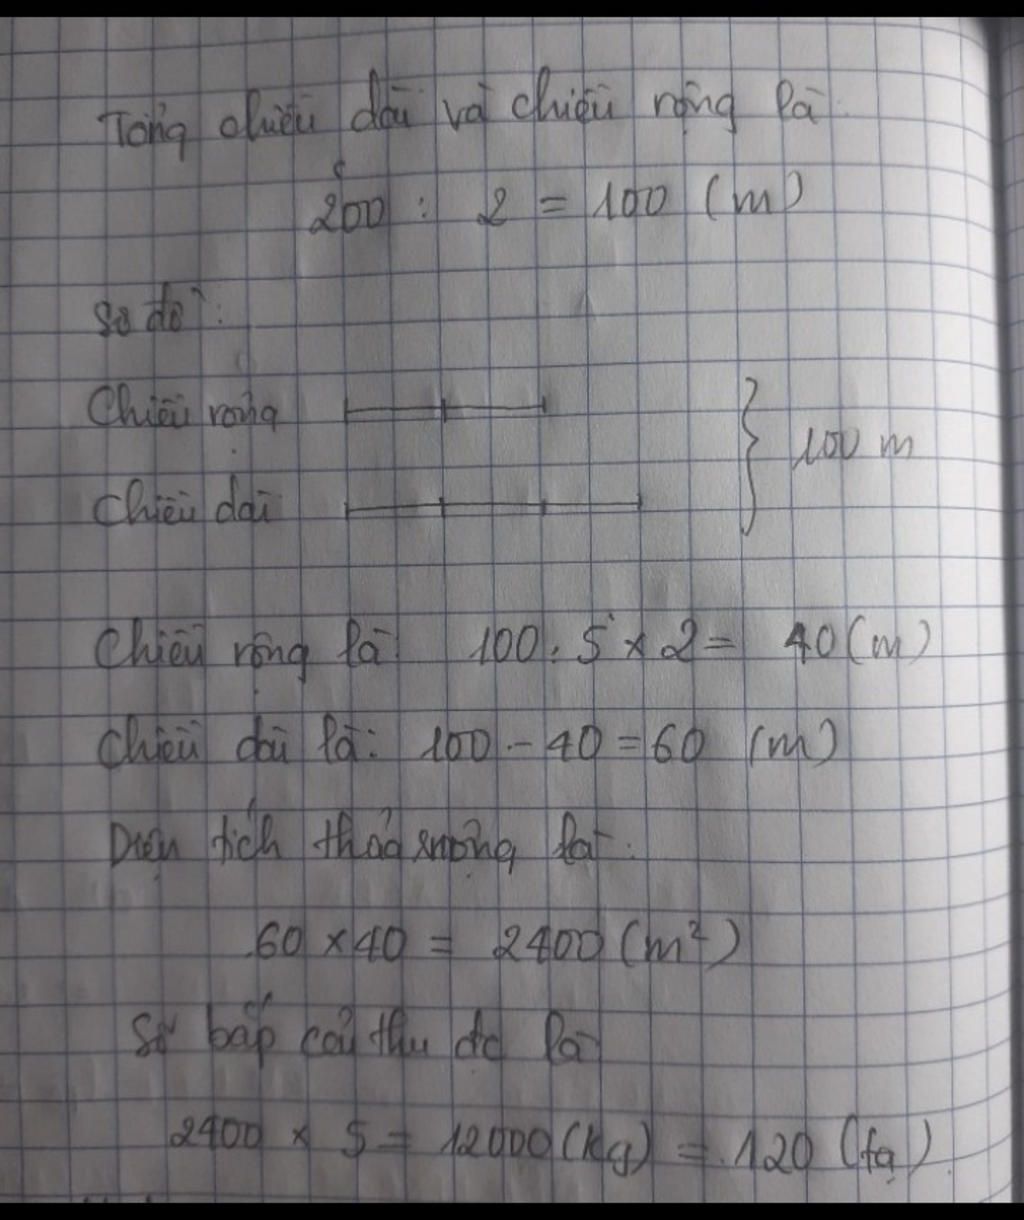 Tổng chiều dài và chiều rộng là:
200 : 2 = 100 (m)
Sơ đồ:
Chiều rộng
100 m
Chiều dài
Chiều rộng là: 100 : 5 x 2 = 40 (m)
Chiều dài là: 100 - 40 = 60 (m)
Diện tích thửa ruộng là:
60 x 40 = 2400 (m²)
Số bắp cải thu đc là
2400 x 5 = 12000 (kg) = 120 (tạ)